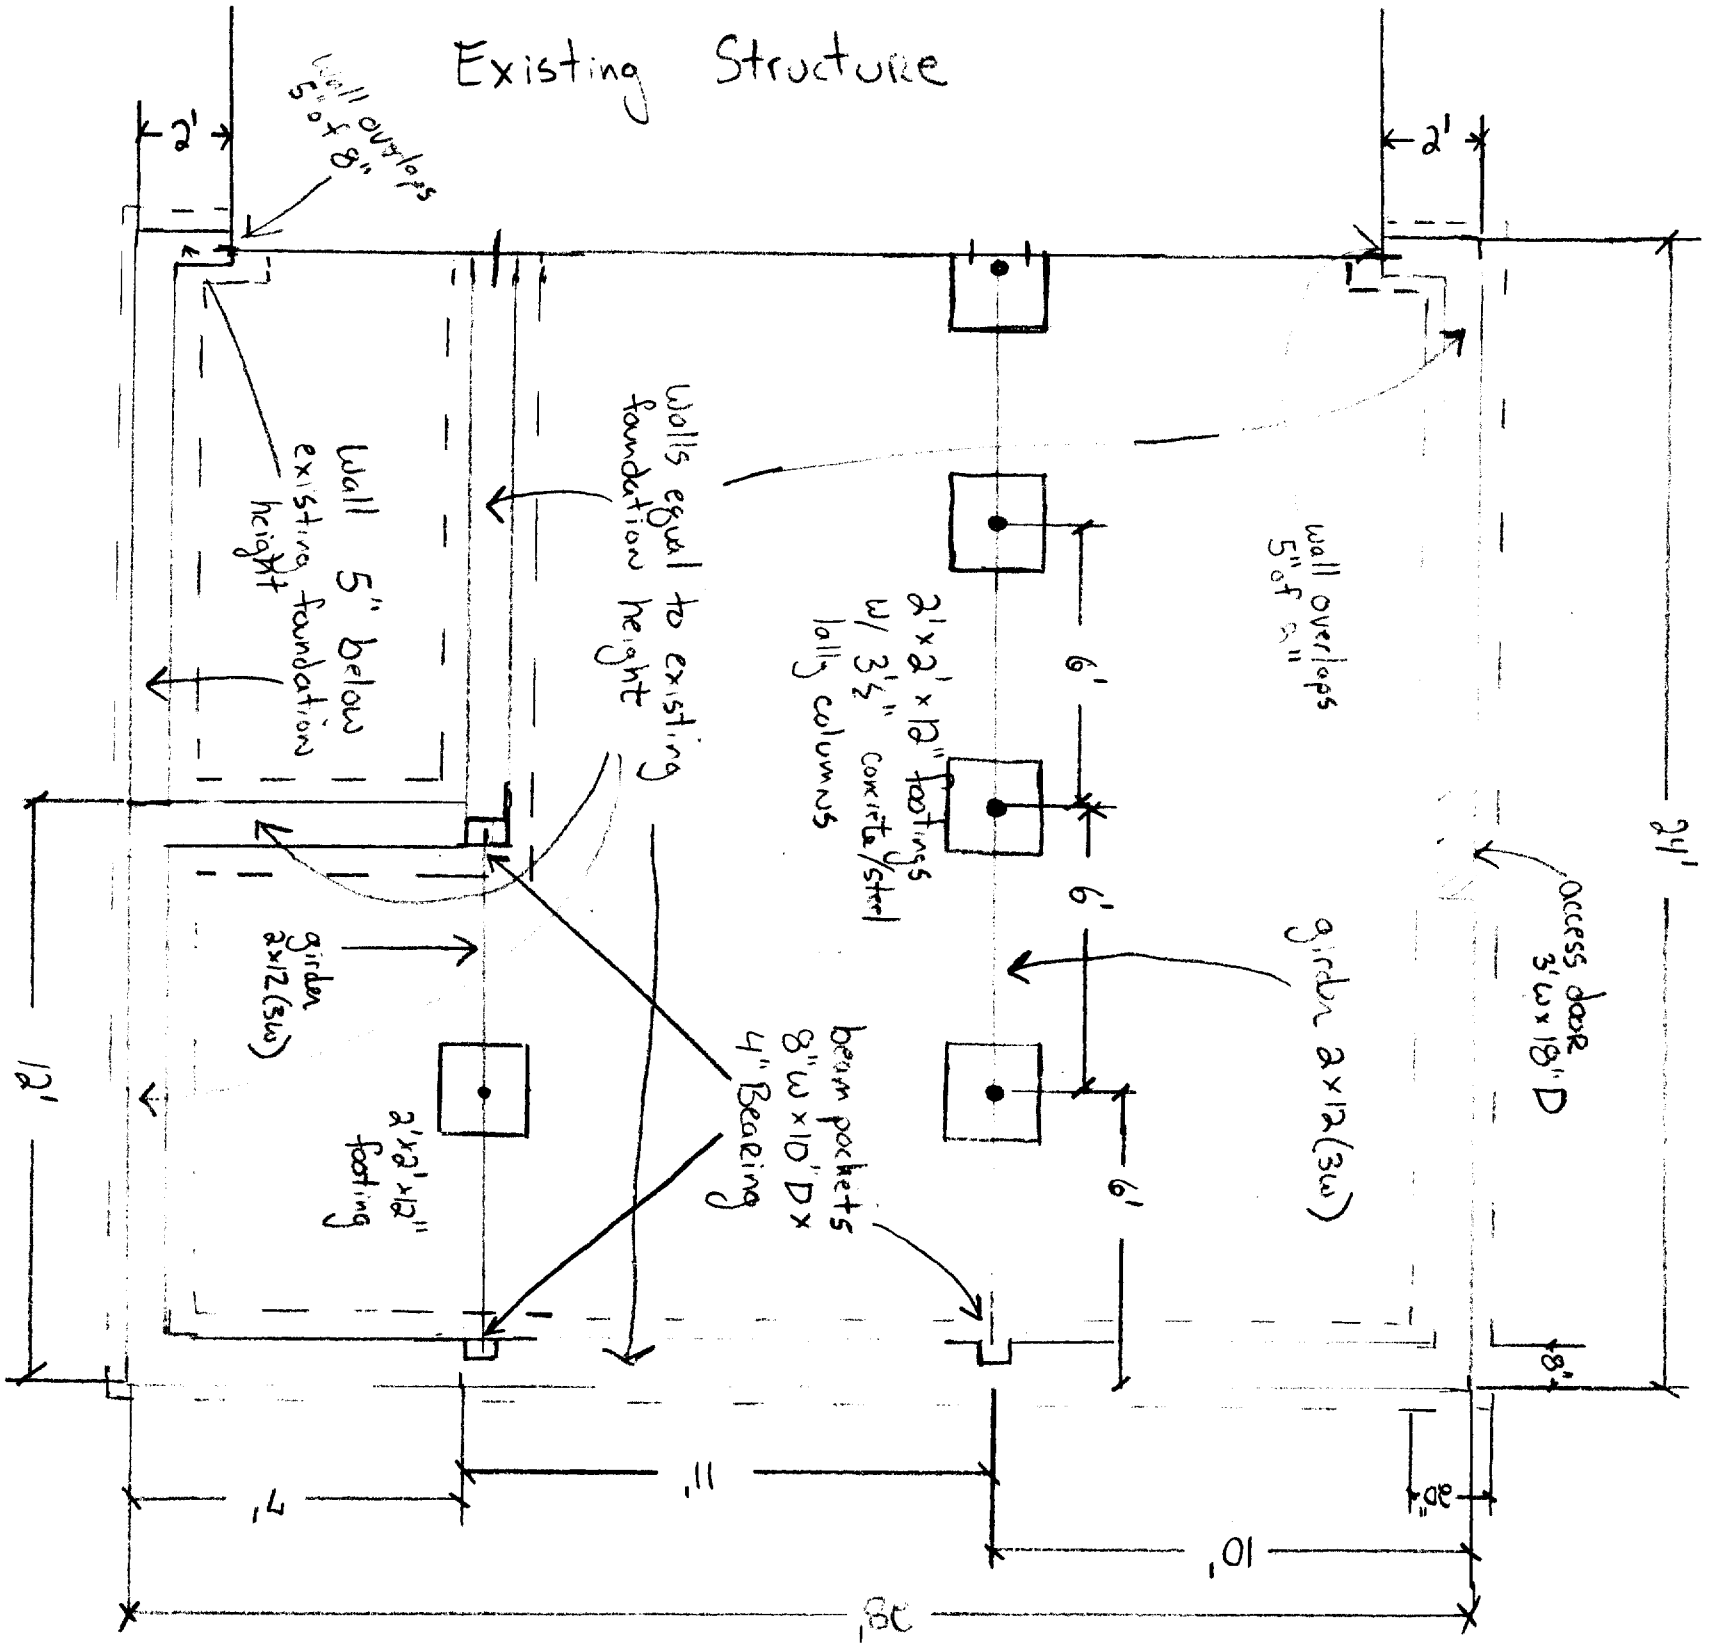 Existing Structure
2'
2'
Wall overlaps
5" of 8"
Walls equal to existing
foundation height
Wall 5" below
existing foundation
height
wall overlaps
5" of
2'x2'x12" footings
w/ 3½" concrete/steel
lally columns
6'
6'
6'
24'
access door
3'w x 18"D
girder 2x12(3w)
girder
2x12(3w)
beam pockets
8"w x 10"D x
4" Bearing
2'x2'x12"
footing
12'
8"
20"
7'
11'
10'
28'